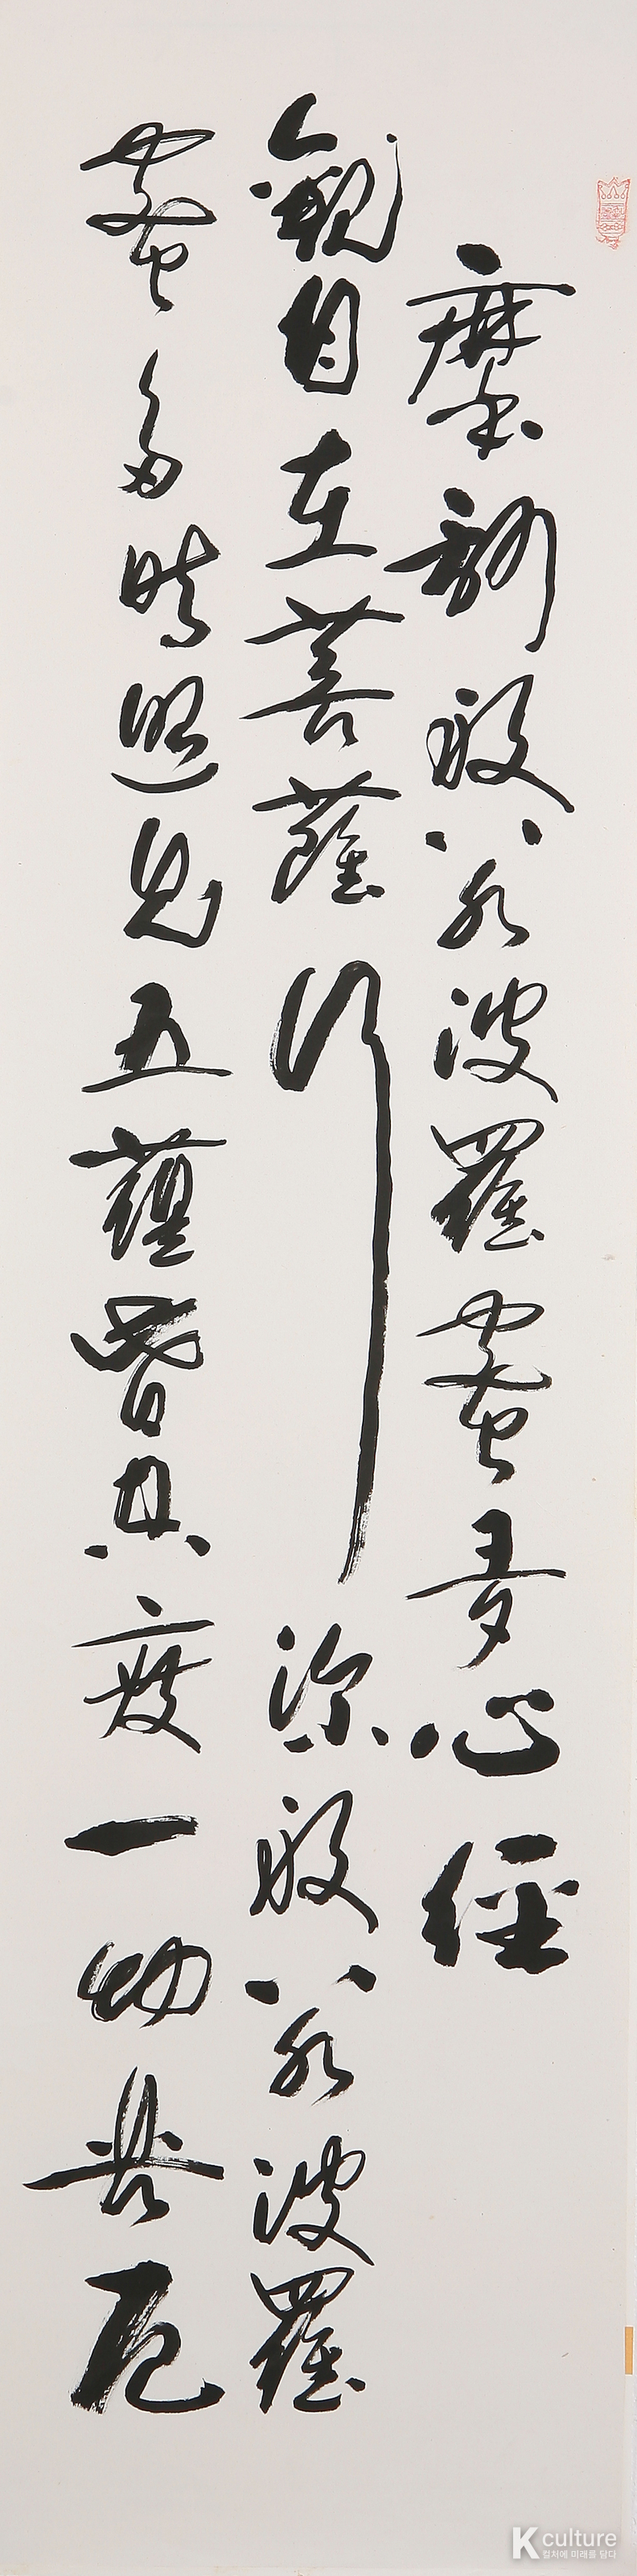 摩訶般若波羅蜜多心經
觀自在菩薩行深般若波羅
蜜多時照見五蘊皆空度一切苦厄
K culture
컬처에 미래를 담다